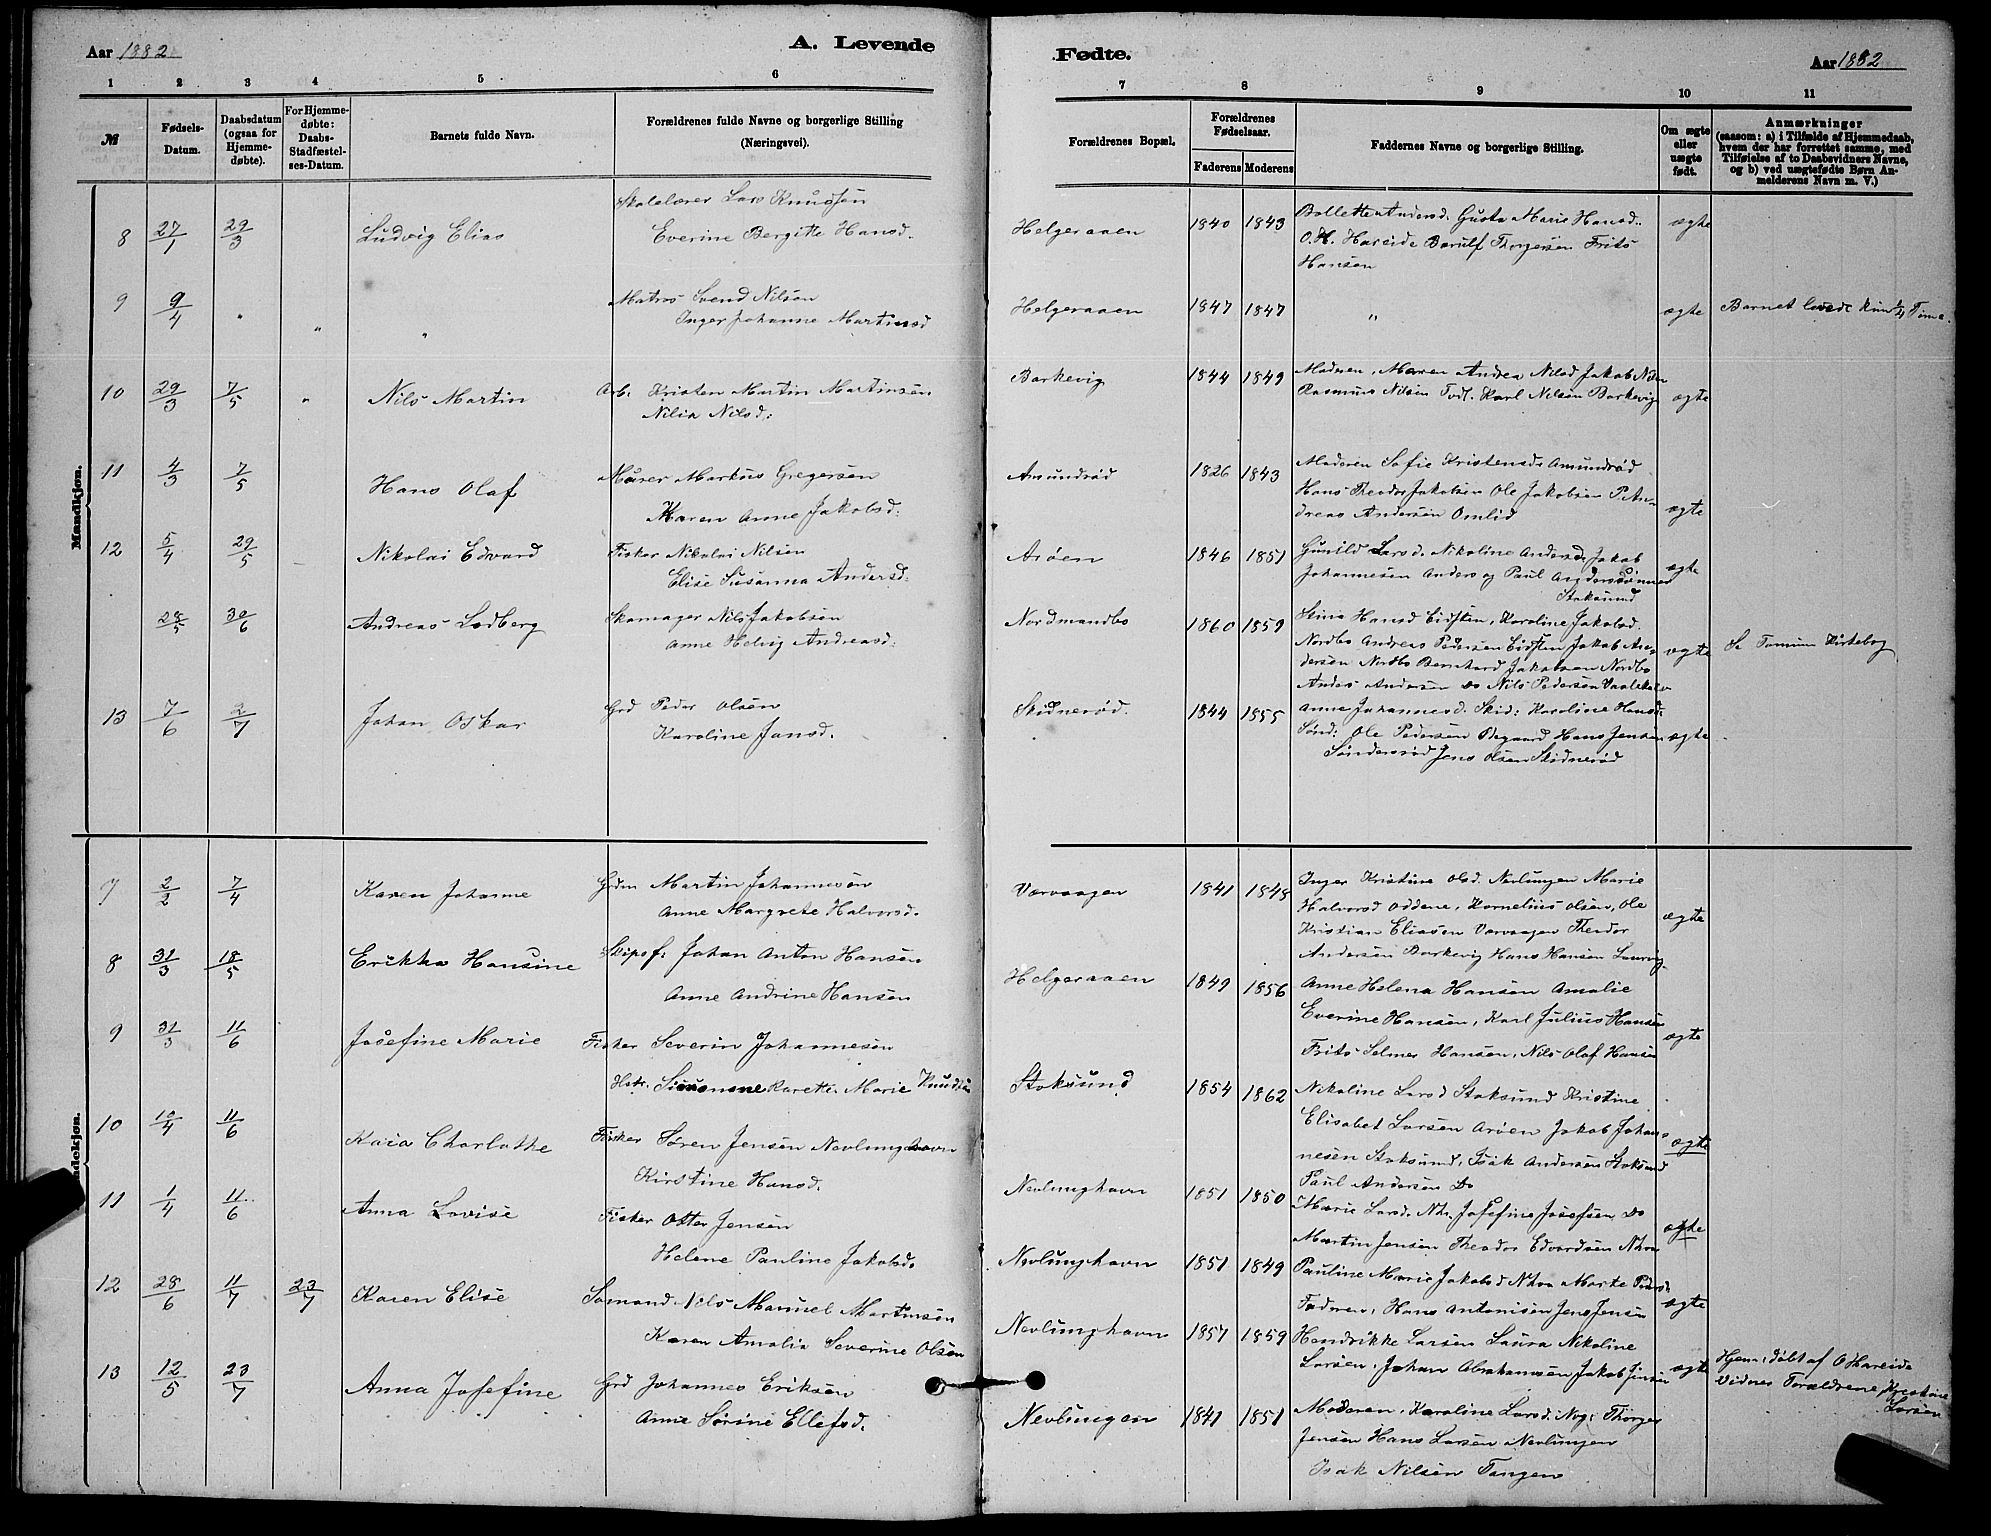 Aar 1882
A. Levende
Fødte.
Aar 1882
1 2 3 4 5 6
7 8 9 10 11
№
Fødsels-Datum.
Daabsdatum (ogsaa for Hjemme-døbte).
For Hjemme-døbte: Daabs-Stadfæstel-ses-Datum.
Barnets fulde Navn.
Forældrenes fulde Navne og borgerlige Stilling (Næringsvei).
Forældrenes Bopæl.
Forældrenes Fødselsaar.
Faderens Moderens
Faddernes Navne og borgerlige Stilling.
Om ægte eller uægte født.
Anmærkninger
(saasom: a) i Tilfælde af Hjemmedaab,
hvem der har forrettet samme, med
Tilføielse af to Daabsvidners Navne,
og b) ved uægtefødte Børn An-
melderens Navn m. V.)
Mandkjøn.
Skolelærer Lars Knudsen
8 27/1 29/3 Ludvig Elias Everine Bergitte Hansd.
Helgeraaen 1840 1843 Bollette Andersd. Gusta Marie Hansd. ægte
O. H. Hareide Barulf Thorgersen Frits
Hansen
9 9/4 " " " Matros Svend Nilsen
Inger Johanne Martinsd
Helgeraaen 1847 1847 " ægte Barnet levede kun 1/4 Time.
10 29/3 7/5 " Nils Martin Arb. Kristen Martin Martinsen
Nilia Nilsd.
Barkevig 1844 1849 Moderen, Maren Andrea Nilsd Jakob Nilsen
Rasmus Nilsen Fodl. Karl Nilsen Barkevig ægte
11 4/3 7/5 Hans Olaf Murer Markus Gregersen
Maren Anne Jakobsd.
Amundrød 1826 1843 Moderen Sofie Kristensd. Amundrød
Hans Theodor Jakobsen Ole Jakobsen P. An-
dreas Andersen Omlid ægte
12 5/4 29/5 Nikolai Edvard Fisker Nikolai Nilsen
Elise Susanna Andersd.
Arøen 1846 1851 Gunild Larsd. Nikoline Andersd. Jakob
Johannesen Anders og Paul Anderssønner ægte
Stoksund
28/5 30/6 Andreas Lodberg Skomager Nils Jakobsen
Anne Helvig Andreasd.
Nordmandbo 1860 1859 Stina Hansd Eidsten, Karoline Jakobsd.
Nordbo Andreas Pedersen Eidsten Jakob An-
dersen Nordbo Bernhard Jakobsen Nordbo ægte Se Tommum Kirkebog
Anders Andersen Do Nils Pedersen
13 7/6 2/7 Johan Oskar Grd Peder Olsen
Karoline Jansd.
Skidnerød. 1844 1855 Anne Johannesd. Skid: Karoline Hansd.
Sønd: Ole Pedersen Hans Jensen ægte
Søndersrød Jens Olsen Skidnerød
7 2/2 7/4 Karen Johanne Grdm Martin Johannesen
Anne Margrete Halvorsd.
Varvaagen 1841 1848 Inger Kristine Olsd. Nevlungen Marie
Halvorsd Oddene, Kornelius Olsen, Ole
Kristian Eliasen Varvaagen Theodor ægte
Andersen Barkevig Hans Hansen Laurvig
8 31/3 18/5 Erikka Hansine Skipsf. Johan Anton Hansen
Anne Andrine Hansen
Helgeraaen 1849 1856 Anne Helena Hansen Amalie
Everine Hansen, Karl Julius Hansen
Frits Selmer Hansen, Nils Olaf Hansen ægte
9 31/3 11/6 Josefine Marie Fisker Severin Johannesen
Hstr. Simonne Karette Marie Knudsen
Stoksund 1854 1862 Nikoline Larsd Stoksund Kristine
Elisabet Larsen Arøen Jakob Johan-
nesen Stoksund, Isak Andersen Stoksund ægte
Paul Andersen Do
10 10/4 11/6 Kaia Charlotte Fisker Søren Jensen Nevlunghavn
Kirstine Hansd.
Nevlunghavn 1851 1850 Marie Larsd. Nhv. Josefine Josefsen Do
Martin Jensen Theodor Edvardsen Nhvn ægte
11 1/4 11/6 Anna Lovise Fisker Otter Jensen
Helene Pauline Jakobsd.
Nevlunghavn 1851 1849 Pauline Marie Jakobsd Nhvn Marte Pedersd.
Faderen, Hans Antonisen Jens Jensen ægte
12 28/6 11/7 23/7 Karen Elise Sømand Nils Manuel Martinsen
Karen Amalia Severine Olsen
Nevlunghavn 1857 1859 Hendrikke Larsen Laura Nikoline
Larsen, Johan Abrahamsen Jakob Jensen ægte Hjem. døbt af O Hareide
Vidner Forældrene, Kristine
Larsen
13 12/5 23/7 Anna Josefine Grd Johannes Eriksen
Anne Sørine Ellefsd.
Nevlungen 1841 1851 Moderen, Karoline Larsd. Nvg. Thorger
Jensen Hans Larsen Nevlungen
Isak Nilsen Tangen